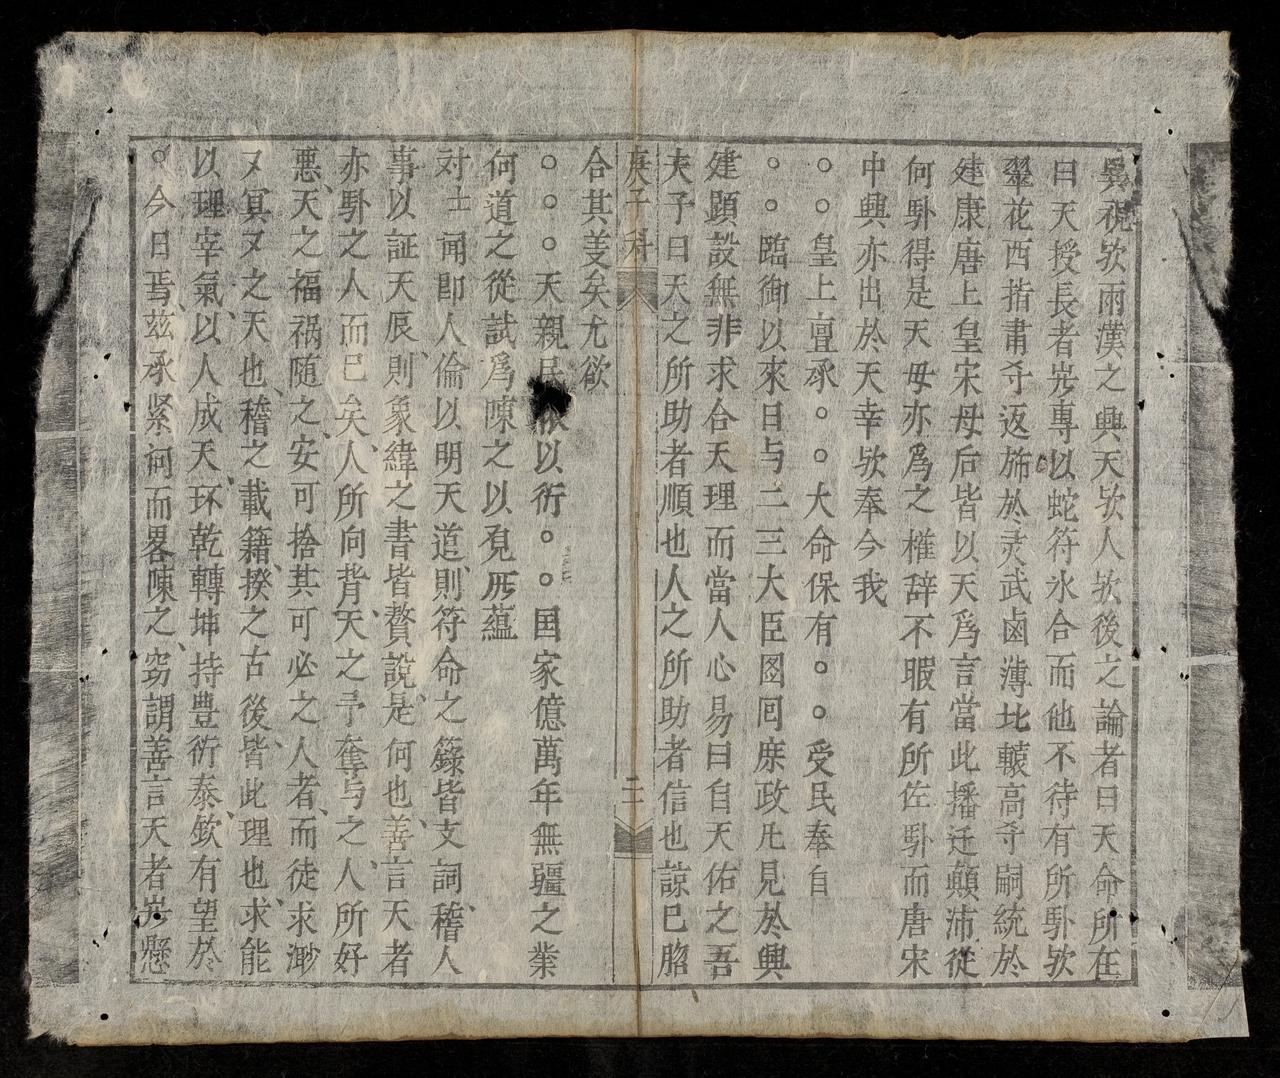 異視欤雨漢之興天欤人欤後之論者曰天命所在
曰天授長者岂專以蛇符氷合而他不待有所卧欤
翠花西指肅寺返斾於灵武鹵薄北轅高寺嗣統於
建康唐上皇宋母后皆以天爲言當此播迁顛沛從
何卧得是天毋亦爲之權辞不暇有所佐卧而唐宋
中興亦出於天幸欤奉今我
○○皇上亶承○○大命保有○○受民奉自
○○臨御以來日与二三大臣啚囘庶政凡見於興
建顕設無非求合天理而當人心易曰自天佑之吾
夫子曰天之所助者順也人之所助者信也諒已脗
庚子科 二
合其美矣尤欲
○○○天親民 依以衍○○国家億萬年無疆之業
何道之從試爲陳之以覔所蘊
対士闻即人倫以明天道、則符命之籙皆支詞、稽人
事以証天辰、則象緯之書皆贅說、是何也、善言天者
亦卧之人而已矣、人所向背、天之予奪与之、人所好
悪、天之福禍随之、安可捨其可必之人者、而徒求渺
又冥又之天也、稽之載籍、揆之古後、皆此理也、求能
以理宰氣、以人成天、环乾轉坤、持豊衍泰、欽有望於
○今日焉、兹承紧问而畧陳之、窃謂善言天者岂懸